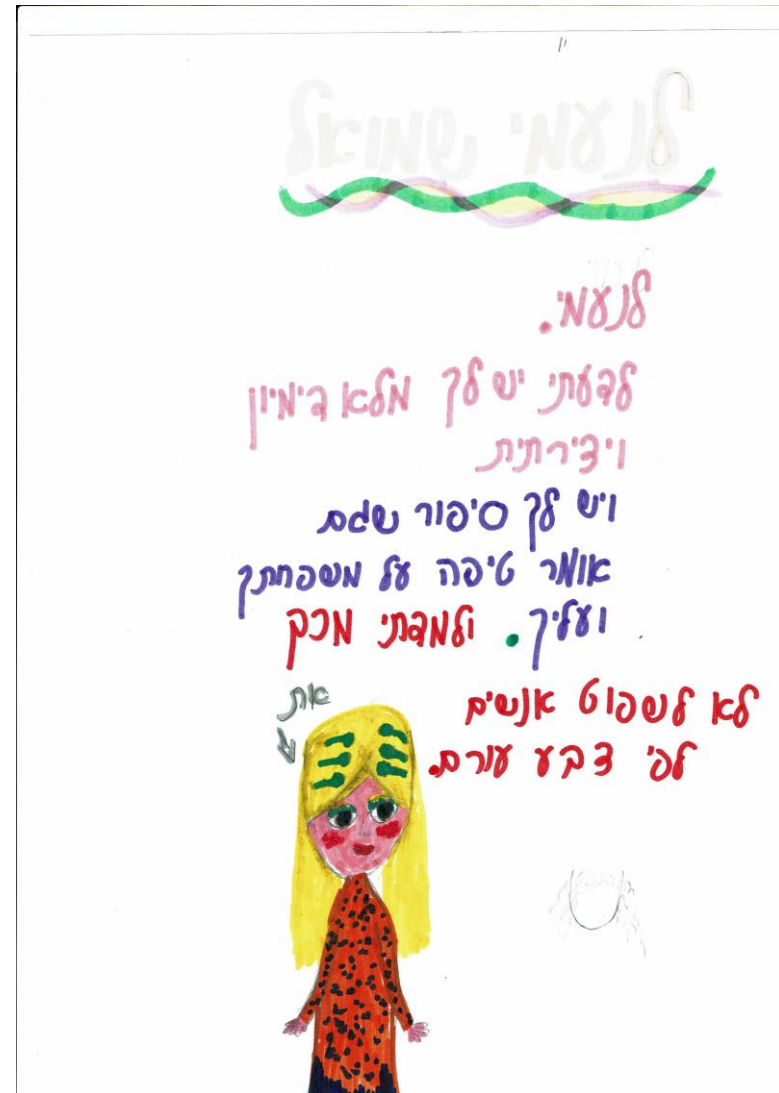 לנעמי שמואל
לנעמי.
לדעתי יש לך מלא דימיון
ויצירתית
ויש לך סיפור שגם
אומר טיפה על משפחתך
ועליך. ולמדתי מכך
לא לשפוט אנשים
לפי צבע עורם.
את